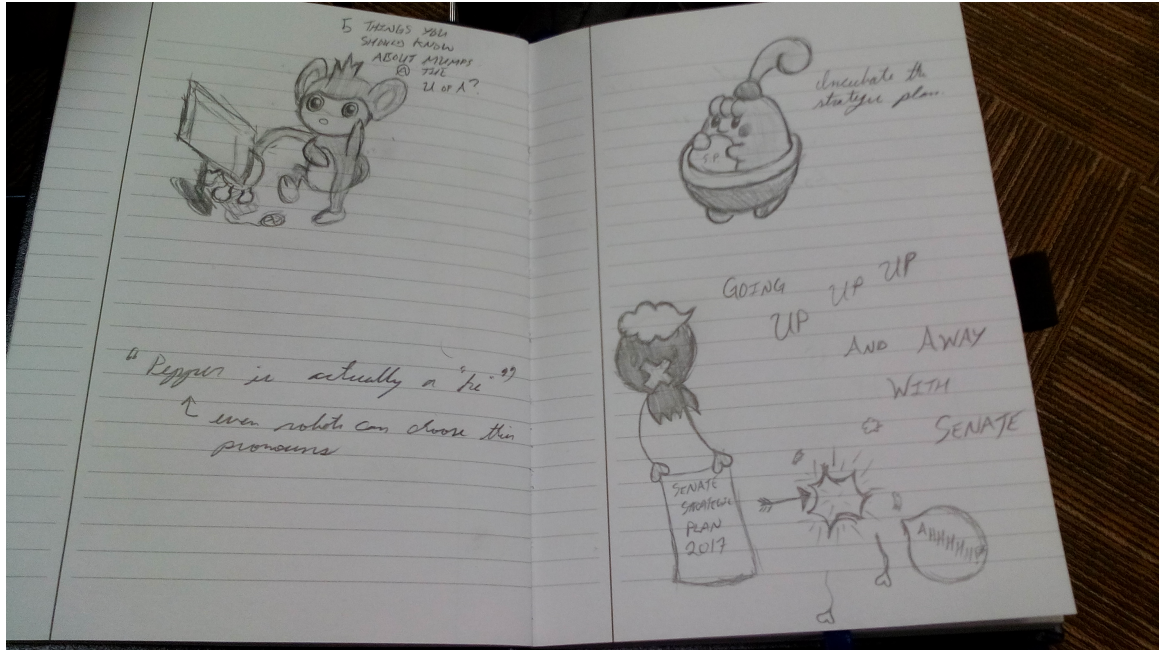 5 THINGS YOU
SHOULD KNOW
ABOUT MUMPS
@ THE
U OF A?
"Pepper is actually a "he""
↑ even robots can choose their
pronouns
Incubate the
strategic plan.
S.P.
GOING UP UP UP
AND AWAY
WITH
SENATE
SENATE
STRATEGIC
PLAN
2017
AHHHHH!!